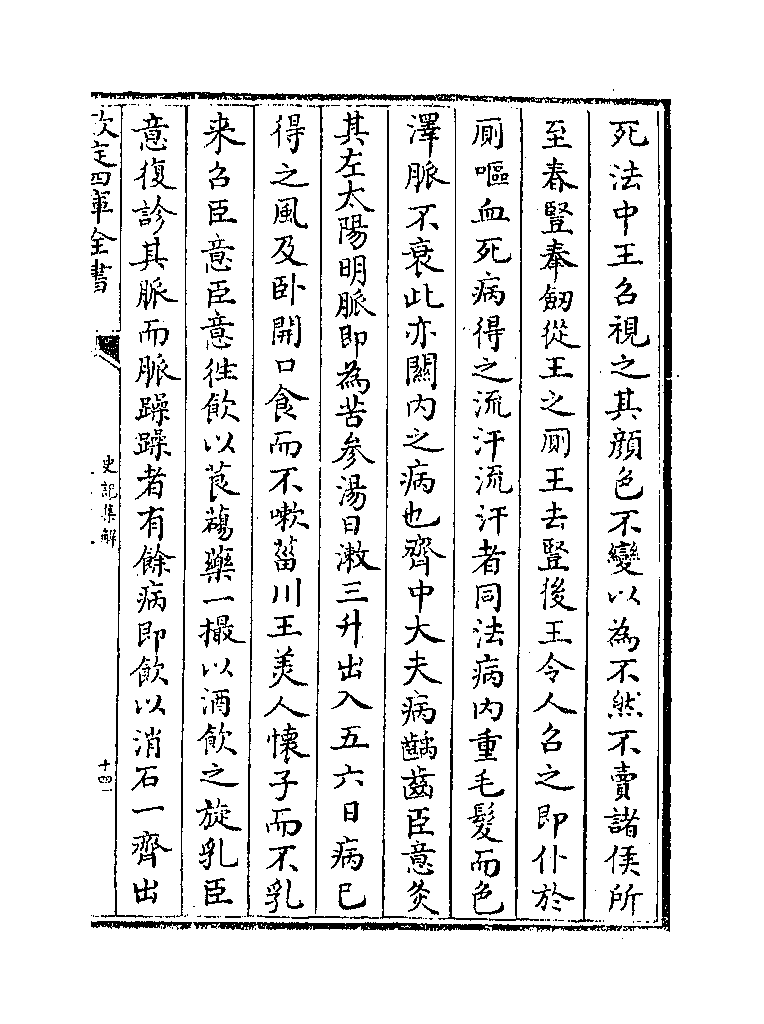 死法中王召視之其顔色不變以為不然不賣諸侯所
至春豎奉劒從王之厠王去豎後王令人召之即仆於
厠嘔血死病得之流汗流汗者同法病内重毛髮而色
澤脈不衰此亦闗内之病也齊中大夫病齲齒臣意灸
其左太陽明脈即為苦參湯日漱三升出入五六日病已
得之風及卧開口食而不嗽菑川王美人懷子而不乳
来召臣意臣意徃飲以莨䓪藥一撮以酒飲之旋乳臣
意復診其脈而脈躁躁者有餘病即飲以消石一齊出
欽定四庫全書
史記集解
十四